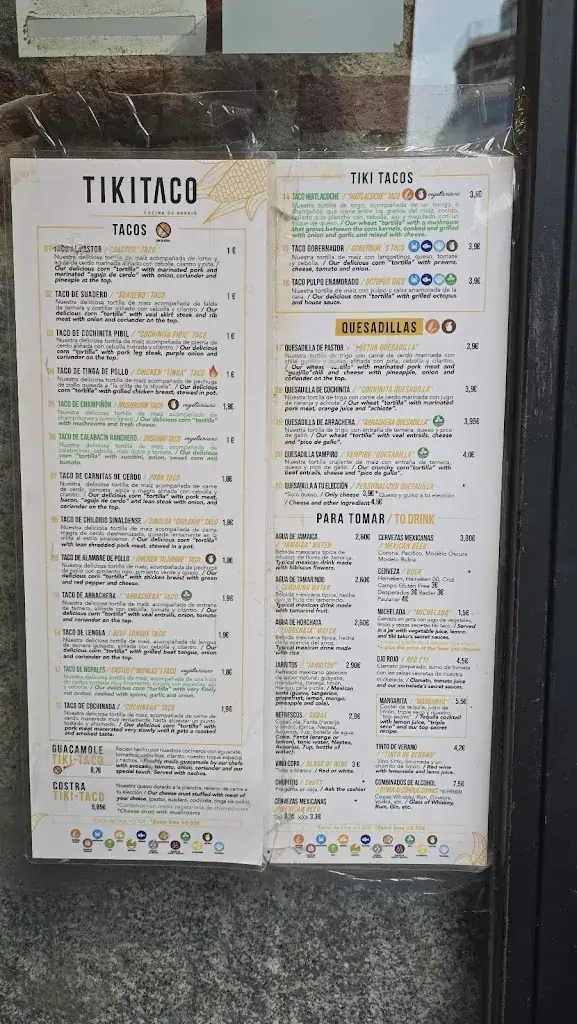 TIKITACO
COCINA DE BARRIO
TACOS
TACO AL PASTOR / "PASTOR" TACO 1 €
Nuestra deliciosa tortilla de maíz acompañada de lomo y
aguja de cerdo marinada aliñado con cebolla, cilantro y piña /
Our delicious corn "tortilla" with marinated pork and
marinated "aguja de cerdo" with onion, coriander and
pineapple at the top.
02 TACO DE SUADERO / "SUADERO" TACO 1 €
Nuestra deliciosa tortilla de maíz acompañada de falda
de ternera y costillar aliñado con cebolla y cilantro. / Our
delicious corn "tortilla" with veal skirt steak and rib
meat with onion and coriander on the top.
03 TACO DE COCHINITA PIBIL / "COCHINITA PIBIL" TACO 1 €
Nuestra deliciosa tortilla de maíz acompañada de pierna de
cerdo aliñada con cebolla morada y cilantro. / Our delicious
corn "tortilla" with pork leg steak, purple onion and
coriander on the top.
04 TACO DE TINGA DE POLLO / CHICKEN "TINGA" TACO 1 €
Nuestra deliciosa tortilla de maíz acompañada de pechuga
de pollo guisada a "la olla de abuela". / Our delicious
corn "tortilla" with grilled chicken breast, stewed in pot.
05 TACO DE CHAMPIÑÓN / MUSHROOM TACO vegetariano 1,8€
Nuestra deliciosa tortilla de maíz acompañada de
champiñones y queso fresco. / Our delicious corn "tortilla"
with mushrooms and fresh cheese.
06 TACO DE CALABACÍN RANCHERO / ZUCCHINI TACO vegetariano 1 €
Nuestra deliciosa tortilla de maíz acompañada de
calabacines, cebolla, maíz dulce y tomate. / Our delicious
corn "tortilla" with zucchini, onion, sweet corn and
tomato.
07 TACO DE CARNITAS DE CERDO / PORK TACO 1,8€
Nuestra deliciosa tortilla de maíz acompañada de carne
de cerdo, panceta, aguja y magro aliñada con cebolla y
cilantro. / Our delicious corn "tortilla" with pork meat,
bacon, "aguja de cerdo" and lean steak with onion, and
coriander on top.
TACO DE CHILORIO SINALOENSE / SINALOA "CHILORIO" TACO 1,8€
Nuestra deliciosa tortilla de maíz acompañada de carne
magra de cerdo desmenuzada, guisada lentamente en la
olla al estilo sinaloense. / Our delicious corn "tortilla"
with lean shredded pork meat, stewed in a pot.
TACO DE ALAMBRE DE POLLO / CHICKEN "ALAMBRE" TACO 1,9€
Nuestra deliciosa tortilla de maíz acompañada de pechuga
de pollo con pimiento rojo, pimiento verde y queso. / Our
delicious corn "tortilla" with thicken breast with green
and red pepper and cheese.
TACO DE ARRACHERA / "ARRACHERA" TACO 1,9€
Nuestra deliciosa tortilla de maíz acompañada de entraña
de ternera, aliñada con cebolla y cilantro. / Our delicious
corn "tortilla" with veal entrails, onion, tomato
and coriander on top.
TACO DE LENGUA / BEEF TONGUE TACO 1,9€
Nuestra deliciosa tortilla de maíz, acompañada de lengua
de ternera guisada, aliñada con cebolla y cilantro. / Our
delicious corn "tortilla" with grilled beef tongue, onion
and coriander on top.
12 TACO DE NOPALES / CACTUS ("NOPALES") TACO vegetariano 1,8€
Our delicious corn "tortilla" with very finely
cut cactus, cooked with spices, garlic and onion.
13 TACO DE COCHINADA / "COCHINADA" TACO 1,9€
Our delicious corn "tortilla" with
pork meat macerated very slowly until it gets a roasted
and smoked taste.
GUACAMOLE
TIKI-TACO
6,7€
Recién hecho por nuestros cocineros con aguacate,
tomatitos, cebollitas, cilantro, nuestro toque especial
y nachos. / Freshly made guacamole by our chefs
with avocado, tomato, onion, coriander and our
special touch. Served with nachos.
COSTRA
TIKI-TACO
5,95€
Nuestro queso dorado a la plancha, relleno de carne a
tu elección / Our cheese crust stuffed with meat of
your choice. (pastor, suadero, cochinita, tinga de pollo).
*Cheese crust with mushrooms
TIKI TACOS
14 TACO HUITLACOCHE / "HUITLACOCHE" TACO vegetariano 3,9€
Nuestra tortilla de trigo, acompañada de un hongo o
champiñón que crece entre los granos del maíz, cocido,
asado a la plancha con cebolla, ajo y mezclada con un
toque de queso. / Our wheat "tortilla" with a mushroom
that grows between the corn kernels, cooked and grilled
with onion and garlic and mixed with cheese.
15 TACO GOBERNADOR / GOBERNOR'S TACO 3,9€
Nuestra tortilla de maíz con langostinos, queso, tomate
y cebolla. / Our delicious corn "tortilla" with prawns,
cheese, tomato and onion.
16 TACO PULPO ENAMORADO / OCTOPUS TACO 3,9€
Nuestra tortilla de maíz con pulpo y salsa enamorada de la
casa. / Our delicious corn "tortilla" with grilled octopus
and house sauce.
QUESADILLAS
17 QUESADILLA DE PASTOR / "PASTOR QUESADILLA" 3,9€
Nuestra tortilla de trigo con carne de cerdo marinada con
chile guajillo y queso, aliñada con piña, cebolla y cilantro. /
Our wheat "tortilla" with marinated pork meat and
"guajillo" chili and cheese with pineapple, onion and
coriander on the top.
18 QUESADILLA DE COCHINITA / "COCHINITA QUESADILLA" 3,9€
Nuestra tortilla de trigo con carne de cerdo marinada con jugo
de naranja y achiote. / Our wheat "tortilla" with marinated
pork meat, orange juice and "achiote".
19 QUESADILLA DE ARRACHERA / "ARRACHERA QUESADILLA" 3,95€
Nuestra tortilla de trigo, con entraña de ternera, queso y pico
de gallo. / Our wheat "tortilla" with veal entrails, cheese
and "pico de gallo".
20 QUESADILLA VAMPIRO / VAMPIRE "QUESADILLA" 4,0€
Nuestra tortilla crujiente de maíz con entraña de ternera,
queso y pico de gallo. / Our crunchy corn "tortilla" with
beef entrails, cheese and "pico de gallo".
QUESADILLA A TU ELECCIÓN / PERSONALIZED QUESADILLA
*Solo queso. / Only cheese 3,9€ *Queso y guiso a tu elección
/ Cheese and other ingredient 4,5€
PARA TOMAR / TO DRINK
AGUA DE JAMAICA 2,60€
/ "JAMAICA" WATER
Bebida mexicana típica de
infusión de flores de Jamaica. /
Typical mexican drink made
with hibiscus flowers.
AGUA DE TAMARINDO 2,60€
/ TAMARIND WATER
Bebida mexicana típica, hecha
con la fruta del tamarindo. /
Typical mexican drink made
with tamarind fruit.
AGUA DE HORCHATA 2,60€
/ "HORCHATA" WATER
Bebida mexicana típica, hecha
de la esencia del arroz. /
Typical mexican drink made
with rice.
JARRITOS / "JARRITOS" 2,90€
Refresco mexicano gaseoso
de sabor natural: guayaba,
mandarina, toronja, limón,
mango, piña y cola. / Mexican
soda (guava, tangerine,
grapefruit, lemon, mango,
pineapple and cola).
REFRESCOS / SODAS 2,9€
Coke, Fanta (orange or
lemon), tonic, Nestea,
Aquarius, 7up, bottle of
water).
VINO COPA / GLASS OF WINE 3 €
Tinto o blanco / Red or white.
CHUPITOS / SHOTS
Pregunta en caja. / Ask the cashier
CERVEZAS MEXICANAS
/ MEXICAN BEER
Sol 3,3€ XXX 3,3€
CERVEZAS MEXICANAS 3,80€
/ MEXICAN BEER
Corona, Pacífico, Modelo Oscura
Modelo Rubia
CERVEZA / BEER
Heineken, Heineken 00, Cruz
Campo Gluten Free 3€
Desperados 3€ Radler 3€
Paulaner 4€
MICHELADA / "MICHELADA" 1,5€
Cerveza en jarra con jugo de vegetales,
limón y salsas secretas Tiki Taco. / Served
in a jar with vegetable juice, lemon
and tiki tako's secret sauces.
*+ plus the price of the beer you choose
OJO ROJO / RED EYE 4,5€
Clamato preparado, zumo de tomate
con las salsas secretas de nuestra
michelada. / Clamato, tomato juice
and our michelada's secret sauces.
MARGARITA / "MARGARITA" 5,5€
Cóctel de tequila, jugo de
limón, triple seco y nuestro
"top secret". / Tequila cocktail
with lemon juice, "triple
seco" and our top secret
recipe.
TINTO DE VERANO 4,2€
/ "TINTO DE VERANO"
Vino tinto, limonada y un
chorrito de limón. / Red wine
with lemonade and lemon juice.
COMBINADOS DE ALCOHOL 7,5€
/ OTHER ALCOHOLIC DRINKS *PREMIUM
Copas Whiskey, Ron, Ginebra,
Vodka, etc. / Glass of Whiskey,
Rum, Gin, etc.